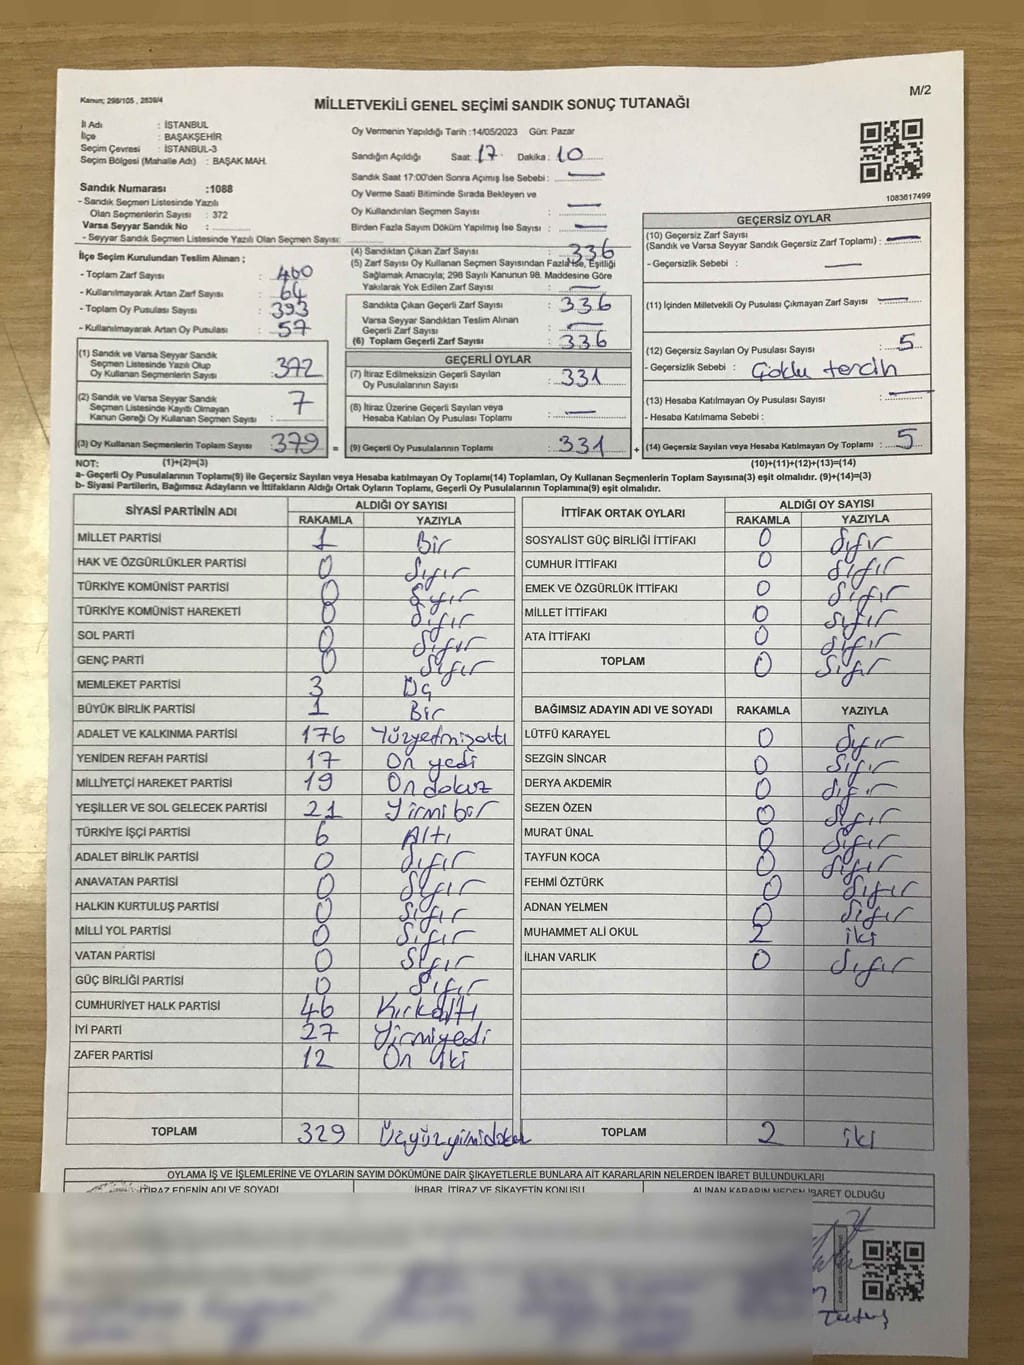 Kanun; 298/105 , 2839/4
M/2
MİLLETVEKİLİ GENEL SEÇİMİ SANDIK SONUÇ TUTANAĞI
İl Adı : İSTANBUL
İlçe : BAŞAKŞEHİR
Seçim Çevresi : İSTANBUL-3
Seçim Bölgesi (Mahalle Adı) : BAŞAK MAH.
Sandık Numarası :1088
- Sandık Seçmen Listesinde Yazılı
Olan Seçmenlerin Sayısı : 372
Varsa Seyyar Sandık No :
- Seyyar Sandık Seçmen Listesinde Yazılı Olan Seçmen Sayısı:
İlçe Seçim Kurulundan Teslim Alınan ;
- Toplam Zarf Sayısı : 400
- Kullanılmayarak Artan Zarf Sayısı : 64
- Toplam Oy Pusulası Sayısı : 393
- Kullanılmayarak Artan Oy Pusulası : 57
(1) Sandık ve Varsa Seyyar Sandık
Seçmen Listesinde Yazılı Olup
Oy Kullanan Seçmenlerin Sayısı : 372
(2) Sandık ve Varsa Seyyar Sandık
Seçmen Listesinde Kayıtlı Olmayan
Kanun Gereği Oy Kullanan Seçmen Sayısı : 7
(3) Oy Kullanan Seçmenlerin Toplam Sayısı : 379 =
Oy Vermenin Yapıldığı Tarih :14/05/2023 Gün: Pazar
Sandığın Açıldığı Saat: 17 Dakika : 10
Sandık Saat 17:00'den Sonra Açımış İse Sebebi : —
Oy Verme Saati Bitiminde Sırada Bekleyen ve
Oy Kullandırılan Seçmen Sayısı : —
Birden Fazla Sayım Döküm Yapılmış İse Sayısı : —
(4) Sandıktan Çıkan Zarf Sayısı : 336
(5) Zarf Sayısı Oy Kullanan Seçmen Sayısından Fazla İse, Eşitliği
Sağlamak Amacıyla; 298 Sayılı Kanunun 98. Maddesine Göre
Yakılarak Yok Edilen Zarf Sayısı : —
Sandıkta Çıkan Geçerli Zarf Sayısı : 336
Varsa Seyyar Sandıktan Teslim Alınan
Geçerli Zarf Sayısı : —
(6) Toplam Geçerli Zarf Sayısı : 336
GEÇERLİ OYLAR
(7) İtiraz Edilmeksizin Geçerli Sayılan
Oy Pusulalarının Sayısı : 331
(8) İtiraz Üzerine Geçerli Sayılan veya
Hesaba Katılan Oy Pusulası Toplamı : —
(9) Geçerli Oy Pusulalarının Toplamı : 331 +
1083617499
GEÇERSİZ OYLAR
(10) Geçersiz Zarf Sayısı
(Sandık ve Varsa Seyyar Sandık Geçersiz Zarf Toplamı) : —
- Geçersizlik Sebebi : —
(11) İçinden Milletvekili Oy Pusulası Çıkmayan Zarf Sayısı : —
(12) Geçersiz Sayılan Oy Pusulası Sayısı : 5
- Geçersizlik Sebebi : Çoklu tercih
(13) Hesaba Katılmayan Oy Pusulası Sayısı : —
- Hesaba Katılmama Sebebi :
(14) Geçersiz Sayılan veya Hesaba Katılmayan Oy Toplamı : 5
NOT: (1)+(2)=(3) (10)+(11)+(12)+(13)=(14)
a- Geçerli Oy Pusulalarının Toplamı(9) ile Geçersiz Sayılan veya Hesaba katılmayan Oy Toplamı(14) Toplamları, Oy Kullanan Seçmenlerin Toplam Sayısına(3) eşit olmalıdır. (9)+(14)=(3)
b- Siyasi Partilerin, Bağımsız Adayların ve İttifakların Aldığı Ortak Oyların Toplamı, Geçerli Oy Pusulalarının Toplamına(9) eşit olmalıdır.
SİYASİ PARTİNİN ADI ALDIĞI OY SAYISI
RAKAMLA YAZIYLA
MİLLET PARTİSİ 1 Bir
HAK VE ÖZGÜRLÜKLER PARTİSİ 0 Sıfır
TÜRKİYE KOMÜNİST PARTİSİ 0 Sıfır
TÜRKİYE KOMÜNİST HAREKETİ 0 Sıfır
SOL PARTİ 0 Sıfır
GENÇ PARTİ 0 Sıfır
MEMLEKET PARTİSİ 3 Üç
BÜYÜK BİRLİK PARTİSİ 1 Bir
ADALET VE KALKINMA PARTİSİ 176 Yüzyetmişaltı
YENİDEN REFAH PARTİSİ 17 On yedi
MİLLİYETÇİ HAREKET PARTİSİ 19 On dokuz
YEŞİLLER VE SOL GELECEK PARTİSİ 21 Yirmi bir
TÜRKİYE İŞÇİ PARTİSİ 6 Altı
ADALET BİRLİK PARTİSİ 0 Sıfır
ANAVATAN PARTİSİ 0 Sıfır
HALKIN KURTULUŞ PARTİSİ 0 Sıfır
MİLLİ YOL PARTİSİ 0 Sıfır
VATAN PARTİSİ 0 Sıfır
GÜÇ BİRLİĞİ PARTİSİ 0 Sıfır
CUMHURİYET HALK PARTİSİ 46 Kırkaltı
İYİ PARTİ 27 Yirmiyedi
ZAFER PARTİSİ 12 On iki
TOPLAM 329 Üçyüzyirmidokuz
İTTİFAK ORTAK OYLARI ALDIĞI OY SAYISI
RAKAMLA YAZIYLA
SOSYALİST GÜÇ BİRLİĞİ İTTİFAKI 0 Sıfır
CUMHUR İTTİFAKI 0 Sıfır
EMEK VE ÖZGÜRLÜK İTTİFAKI 0 Sıfır
MİLLET İTTİFAKI 0 Sıfır
ATA İTTİFAKI 0 Sıfır
TOPLAM 0 Sıfır
BAĞIMSIZ ADAYIN ADI VE SOYADI RAKAMLA YAZIYLA
LÜTFÜ KARAYEL 0 Sıfır
SEZGİN SİNCAR 0 Sıfır
DERYA AKDEMİR 0 Sıfır
SEZEN ÖZEN 0 Sıfır
MURAT ÜNAL 0 Sıfır
TAYFUN KOCA 0 Sıfır
FEHMİ ÖZTÜRK 0 Sıfır
ADNAN YELMEN 0 Sıfır
MUHAMMET ALİ OKUL 2 iki
İLHAN VARLIK 0 Sıfır
TOPLAM 2 iki
OYLAMA İŞ VE İŞLEMLERİNE VE OYLARIN SAYIM DÖKÜMÜNE DAİR ŞİKAYETLERLE BUNLARA AİT KARARLARIN NELERDEN İBARET BULUNDUKLARI
İTİRAZ EDENİN ADI VE SOYADI İHBAR, İTİRAZ VE ŞİKAYETİN KONUSU ALINAN KARARIN NEDEN İBARET OLDUĞU